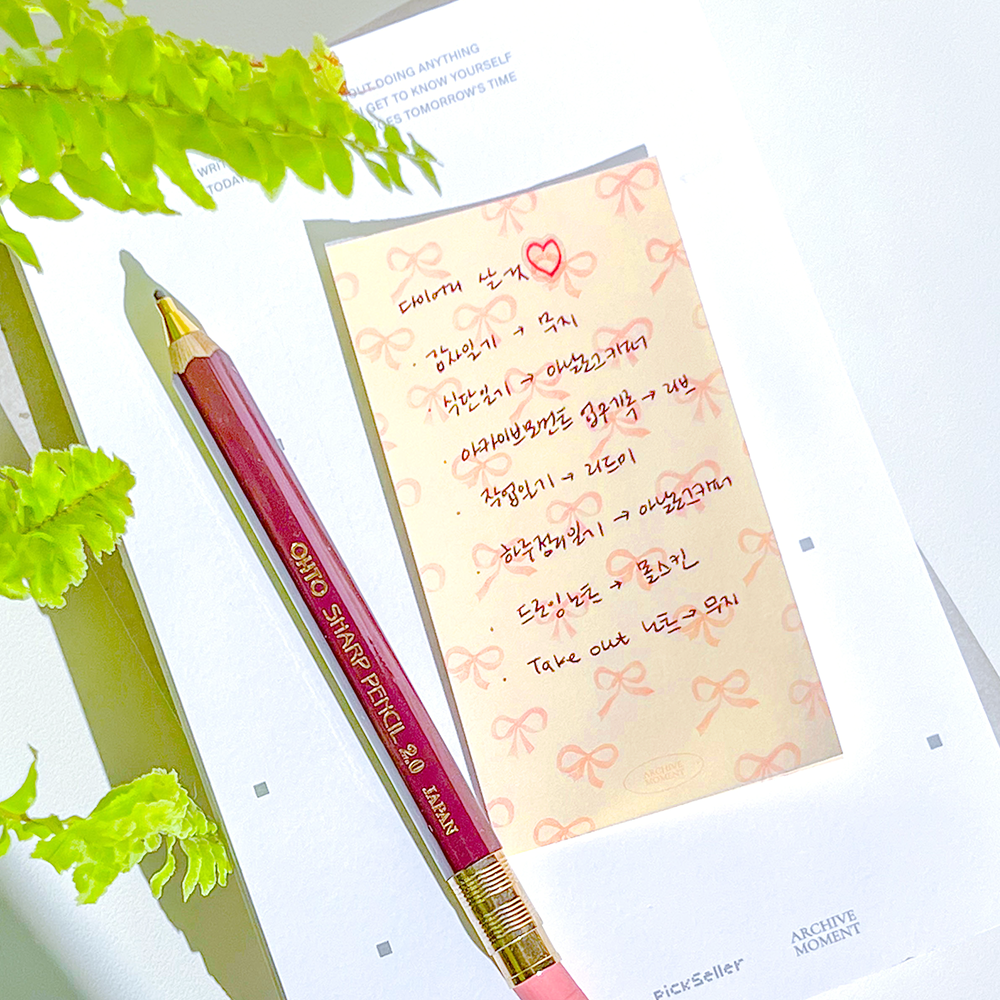 OUT DOING ANYTHING
GET TO KNOW YOURSELF
DOES TOMORROW'S TIME
WRIT
TODAY
다이어리 살 것
· 감사일기 → 무지
· 식단일기 → 아날로그키퍼
· 아카이브모먼트 업무기록 → 리브
· 작업일기 → 리드미
· 하루정리일기 → 아날로그키퍼
· 드로잉노트 → 몰스킨
· Take out 노트 → 무지
ARCHIVE
MOMENT
OHTO SHARP PENCIL 2.0 JAPAN
ARCHIVE
MOMENT
PICKSELLER